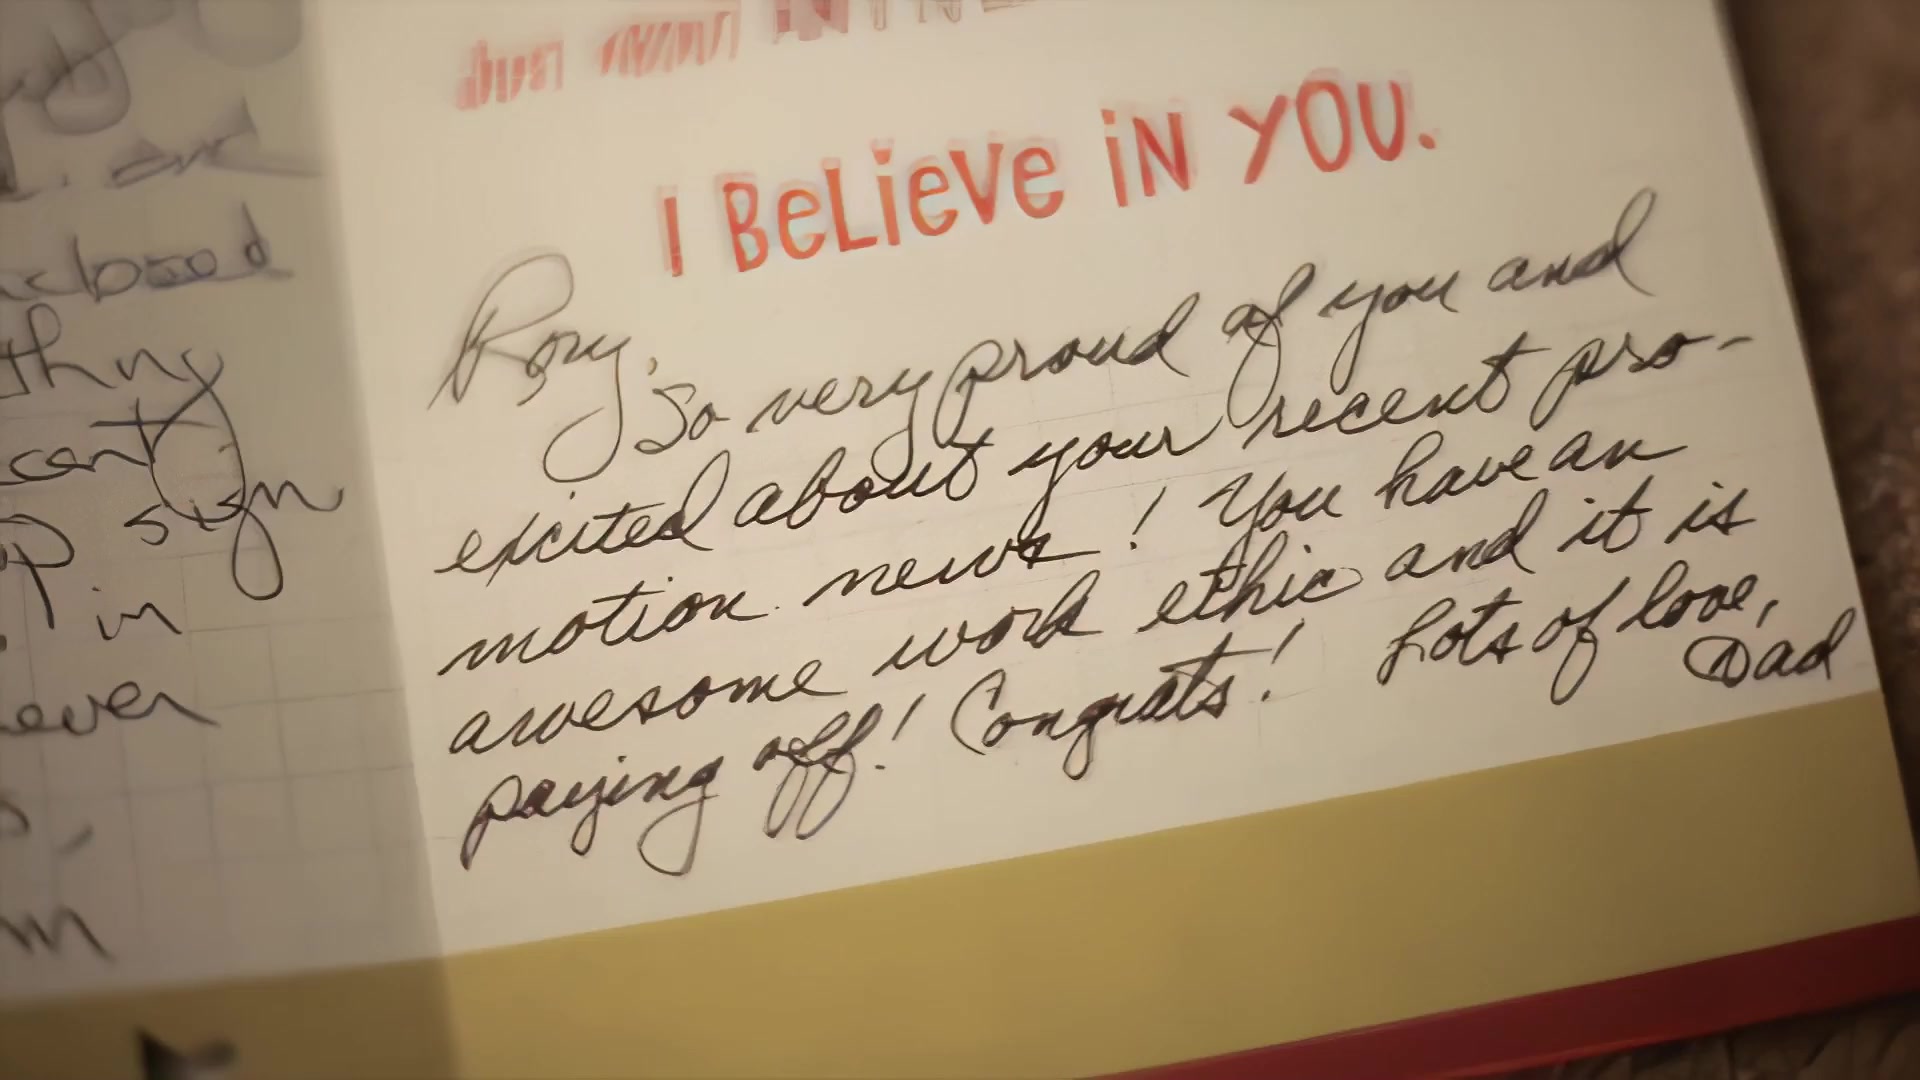 Just about
I BeLieVe iN YOU.
Rory,
So very proud of you and
excited about your recent pro-
motion news! You have an
awesome work ethic and it is
paying off! Congrats! Lots of love,
Dad
closed
thny
cent
sign
in
ever